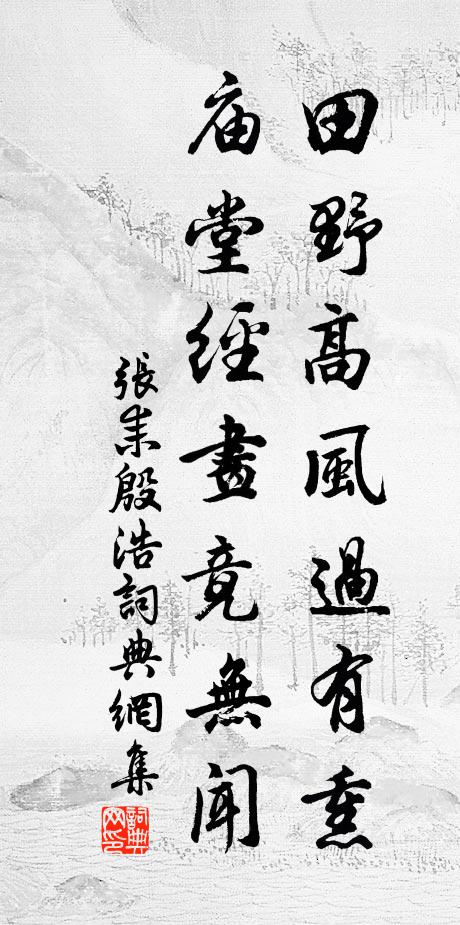 田野高風過有
庙堂經畫竟無聞
張耒殷浩詞典網集
詞典
网印